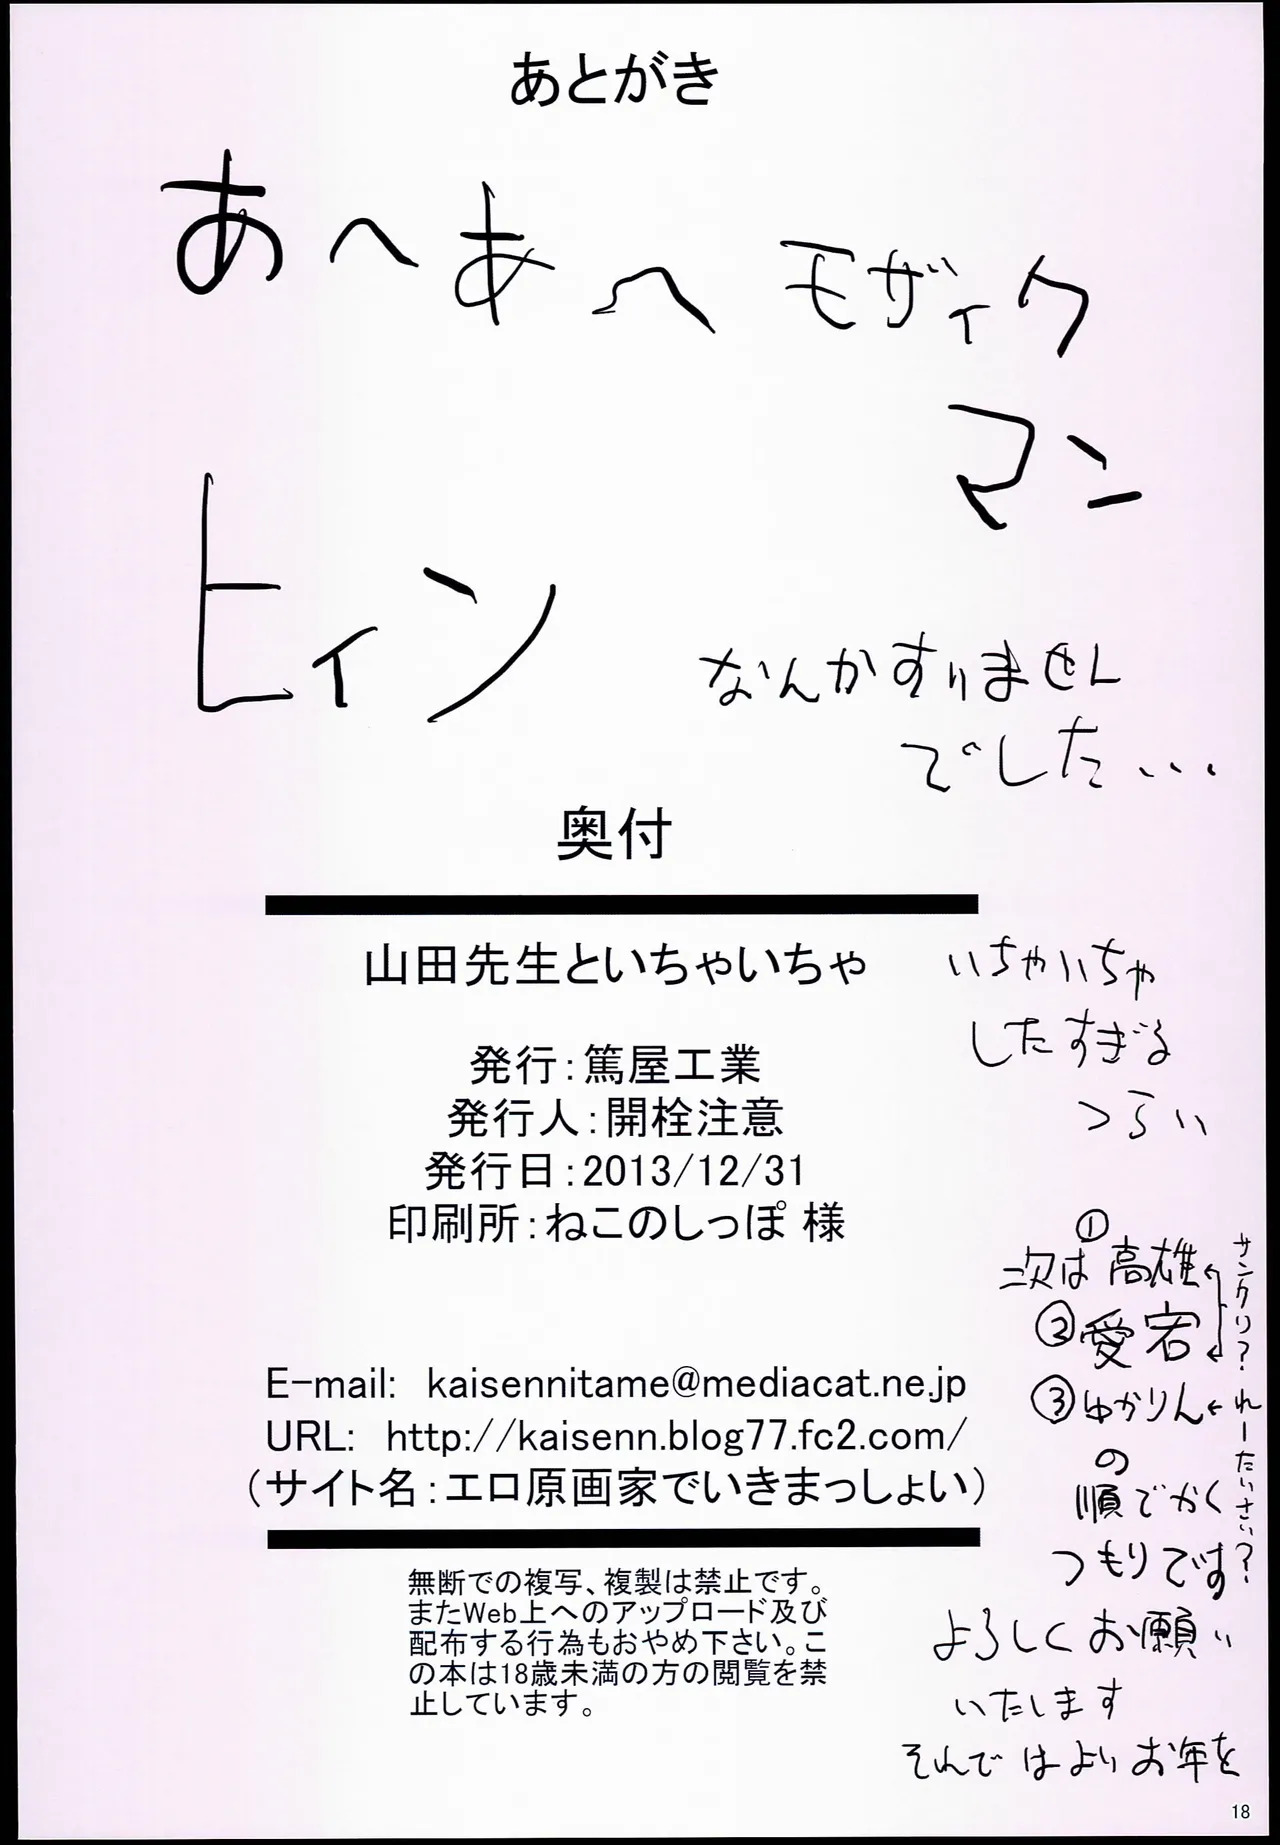 あとがき
あへあへ モザイク
マン
ヒィン
なんかすいません
でした...
奥付
山田先生といちゃいちゃ
発行：篤屋工業
発行人：開栓注意
発行日：2013/12/31
印刷所：ねこのしっぽ 様
E-mail: kaisennitame@mediacat.ne.jp
URL: http://kaisenn.blog77.fc2.com/
（サイト名：エロ原画家でいきまっしょい）
無断での複写、複製は禁止です。
またWeb上へのアップロード及び
配布する行為もおやめ下さい。こ
の本は18歳未満の方の閲覧を禁
止しています。
いちゃいちゃ
したすぎる
つらい
次は①高雄
②愛宕
サンクリ？
③ゆかりん
れーたいさい？
の
順でかく
つもりです
よろしくお願い
いたします
それではよいお年を
18